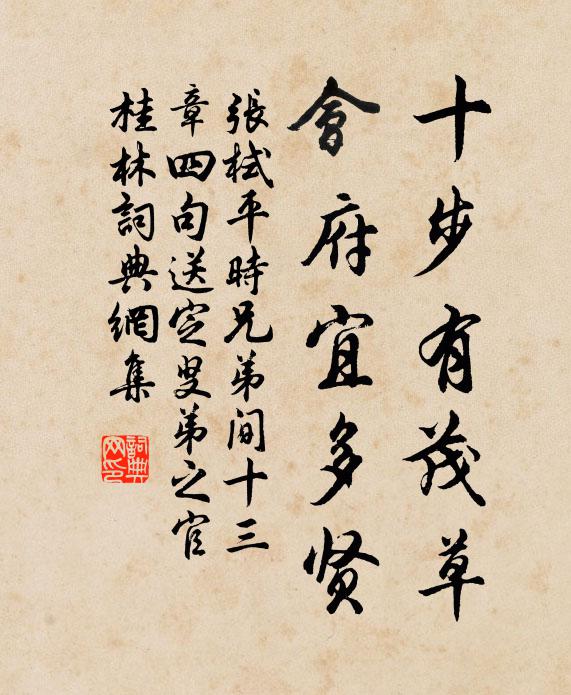 十步有茂草
會府宜多贤
張栻平時兄弟間十三
章四句送定叟弟之官
桂林詞典網集
詞典网印